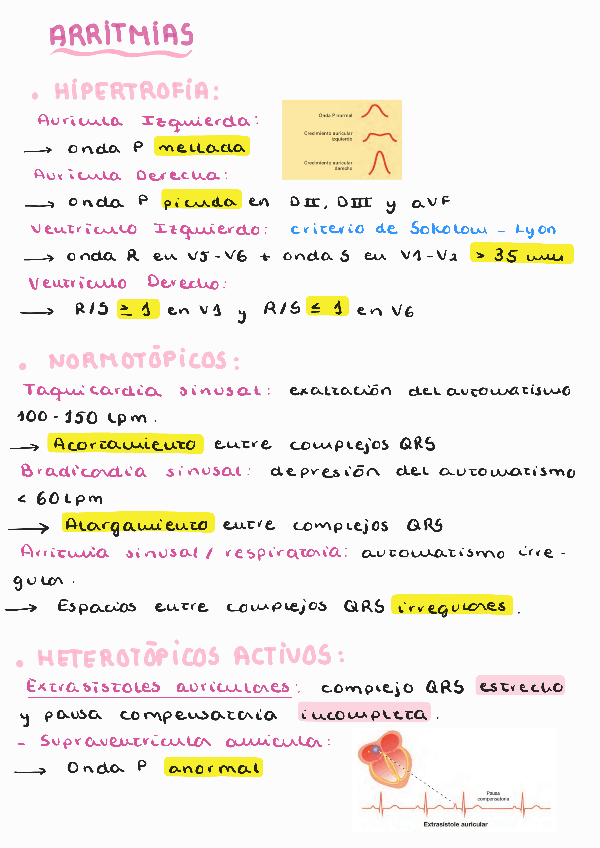 ARRITMIAS
• HIPERTROFIA:
Aurícula Izquierda:
→ onda P mellada
Onda P normal
Crecimiento auricular izquierdo
Crecimiento auricular derecho
Aurícula Derecha:
→ onda P picuda en DII, DIII y aVF
Ventrículo Izquierdo: criterio de Sokolow - Lyon
→ onda R en V5-V6 + onda S en V1-V2 > 35 mm
Ventrículo Derecho:
→ R/S ≥ 1 en V1 y R/S ≤ 1 en V6
• NORMOTÓPICOS:
Taquicardia sinusal: exaltación del automatismo
100-150 lpm.
→ Acortamiento entre complejos QRS
Bradicardia sinusal: depresión del automatismo
< 60 lpm
→ Alargamiento entre complejos QRS
Arritmia sinusal / respiratoria: automatismo irre-
gular.
→ Espacios entre complejos QRS irregulares.
• HETEROTÓPICOS ACTIVOS:
Extrasístoles auriculares: complejo QRS estrecho
y pausa compensatoria incompleta.
- Supraventricular auricular:
→ Onda P anormal
Pausa
compensatoria
Extrasístole auricular